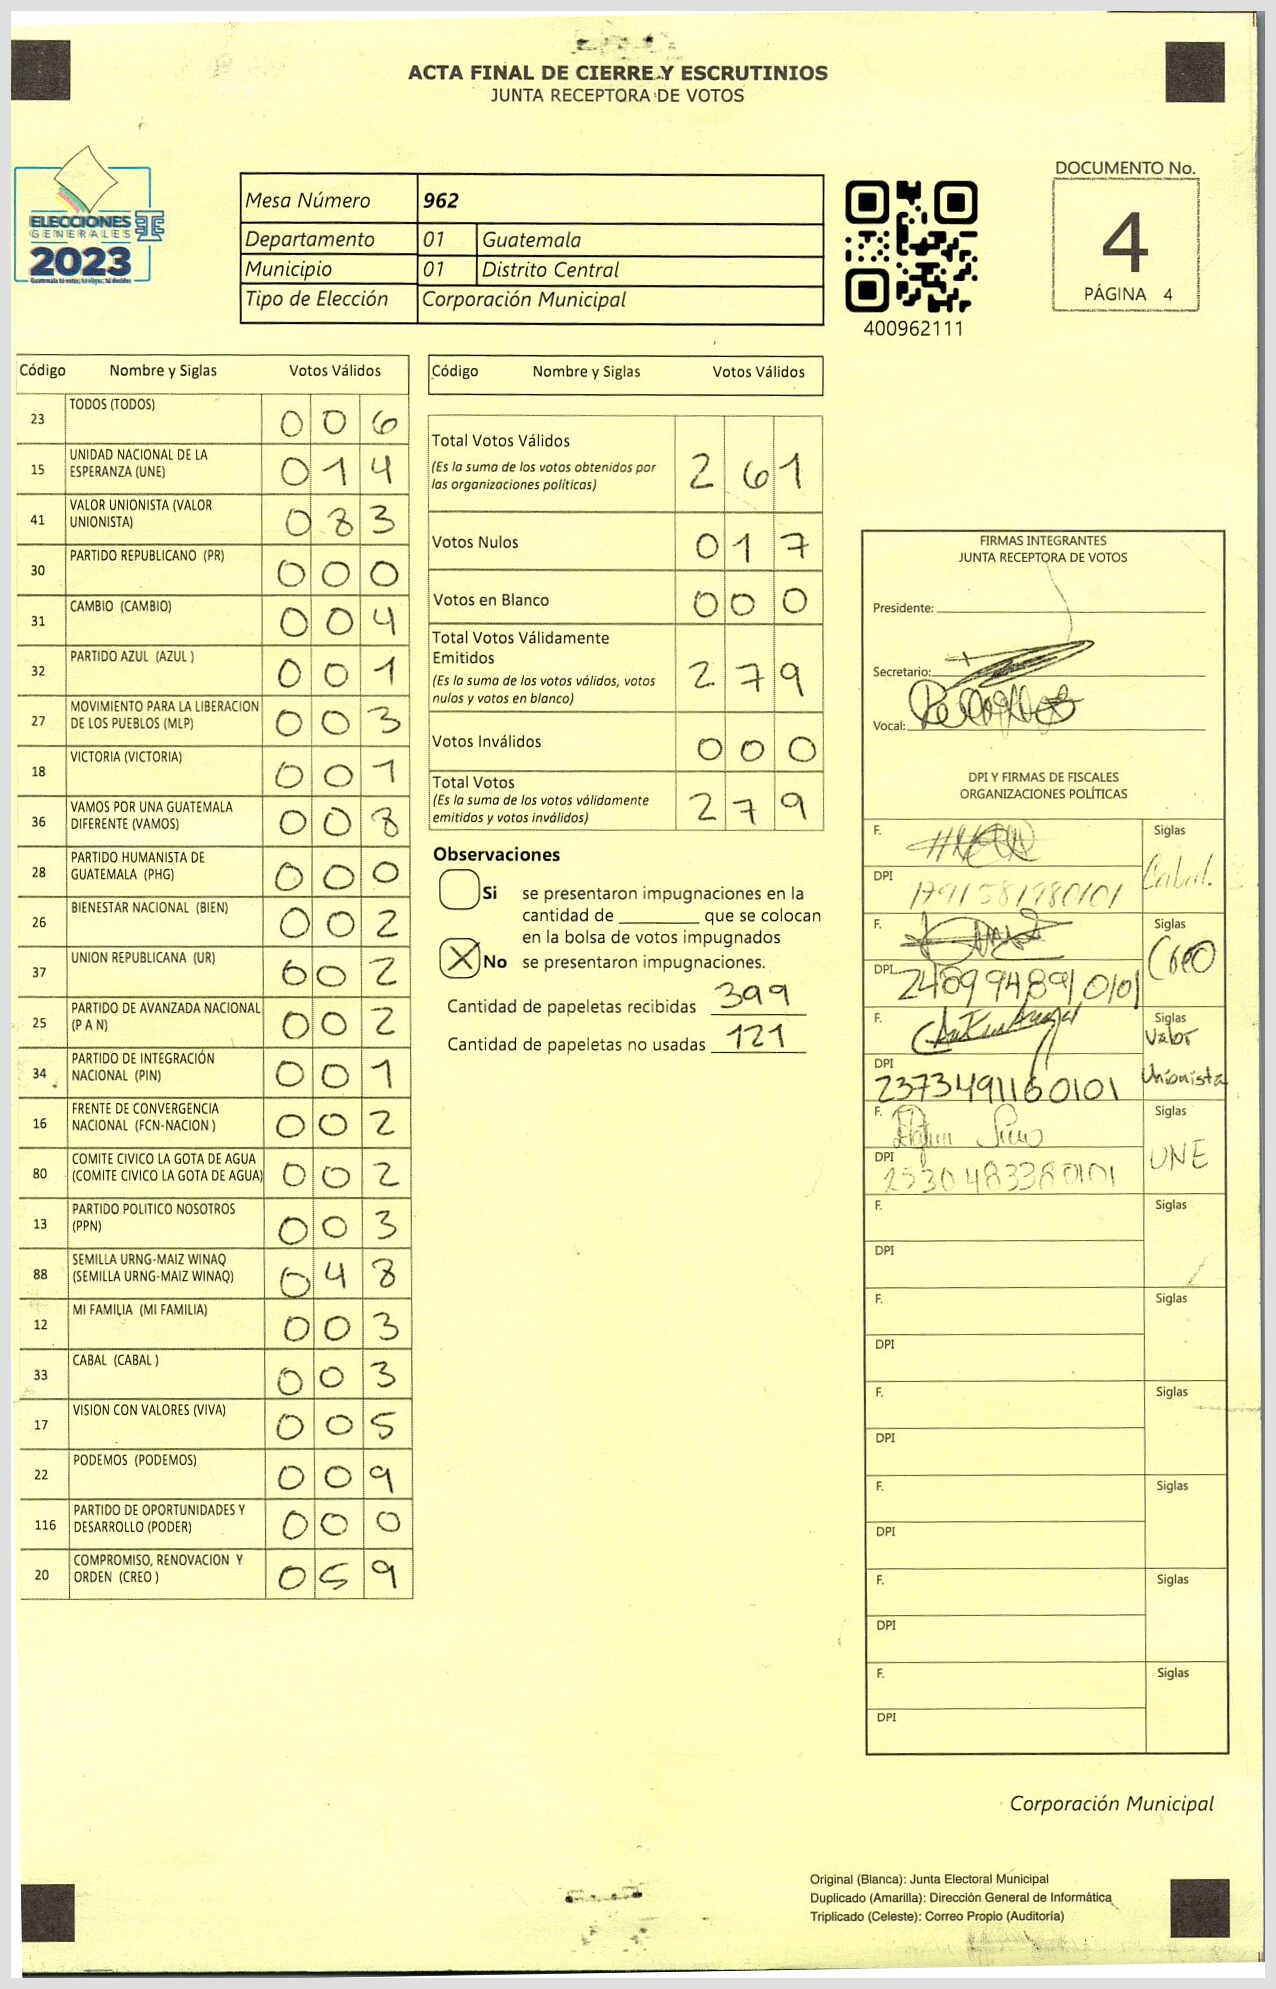 ACTA FINAL DE CIERRE Y ESCRUTINIOS
JUNTA RECEPTORA DE VOTOS
ELECCIONES
GENERALES
2023
Mesa Número 962
Departamento 01 Guatemala
Municipio 01 Distrito Central
Tipo de Elección Corporación Municipal
400962111
DOCUMENTO No.
4
PÁGINA 4
Código Nombre y Siglas Votos Válidos
23 TODOS (TODOS) 0 0 6
15 UNIDAD NACIONAL DE LA ESPERANZA (UNE) 0 1 4
41 VALOR UNIONISTA (VALOR UNIONISTA) 0 8 3
30 PARTIDO REPUBLICANO (PR) 0 0 0
31 CAMBIO (CAMBIO) 0 0 4
32 PARTIDO AZUL (AZUL ) 0 0 1
27 MOVIMIENTO PARA LA LIBERACION DE LOS PUEBLOS (MLP) 0 0 3
18 VICTORIA (VICTORIA) 0 0 1
36 VAMOS POR UNA GUATEMALA DIFERENTE (VAMOS) 0 0 8
28 PARTIDO HUMANISTA DE GUATEMALA (PHG) 0 0 0
26 BIENESTAR NACIONAL (BIEN) 0 0 2
37 UNION REPUBLICANA (UR) 0 0 2
25 PARTIDO DE AVANZADA NACIONAL (P A N) 0 0 2
34 PARTIDO DE INTEGRACIÓN NACIONAL (PIN) 0 0 1
16 FRENTE DE CONVERGENCIA NACIONAL (FCN-NACION ) 0 0 2
80 COMITE CIVICO LA GOTA DE AGUA (COMITE CIVICO LA GOTA DE AGUA) 0 0 2
13 PARTIDO POLITICO NOSOTROS (PPN) 0 0 3
88 SEMILLA URNG-MAIZ WINAQ (SEMILLA URNG-MAIZ WINAQ) 0 4 8
12 MI FAMILIA (MI FAMILIA) 0 0 3
33 CABAL (CABAL ) 0 0 3
17 VISION CON VALORES (VIVA) 0 0 5
22 PODEMOS (PODEMOS) 0 0 9
116 PARTIDO DE OPORTUNIDADES Y DESARROLLO (PODER) 0 0 0
20 COMPROMISO, RENOVACION Y ORDEN (CREO ) 0 5 9
Código Nombre y Siglas Votos Válidos
Total Votos Válidos 2 6 1
(Es la suma de los votos obtenidos por
las organizaciones políticas)
Votos Nulos 0 1 7
Votos en Blanco 0 0 0
Total Votos Válidamente
Emitidos 2 7 9
(Es la suma de los votos válidos, votos
nulos y votos en blanco)
Votos Inválidos 0 0 0
Total Votos 2 7 9
(Es la suma de los votos válidamente
emitidos y votos inválidos)
Observaciones
Si se presentaron impugnaciones en la
cantidad de ________ que se colocan
en la bolsa de votos impugnados
X No se presentaron impugnaciones.
Cantidad de papeletas recibidas 399
Cantidad de papeletas no usadas 121
FIRMAS INTEGRANTES
JUNTA RECEPTORA DE VOTOS
Presidente:
Secretario:
Vocal:
DPI Y FIRMAS DE FISCALES
ORGANIZACIONES POLÍTICAS
F. Siglas
Cabal.
DPI 1791581980101
F. Siglas
Creo
DPI 2489948910101
F. Siglas
Valor
Unionista
DPI 2373491160101
F. Siglas
UNE
DPI 2530483380101
F. Siglas
DPI
F. Siglas
DPI
F. Siglas
DPI
F. Siglas
DPI
F. Siglas
DPI
F. Siglas
DPI
Corporación Municipal
Original (Blanca): Junta Electoral Municipal
Duplicado (Amarilla): Dirección General de Informática
Triplicado (Celeste): Correo Propio (Auditoría)